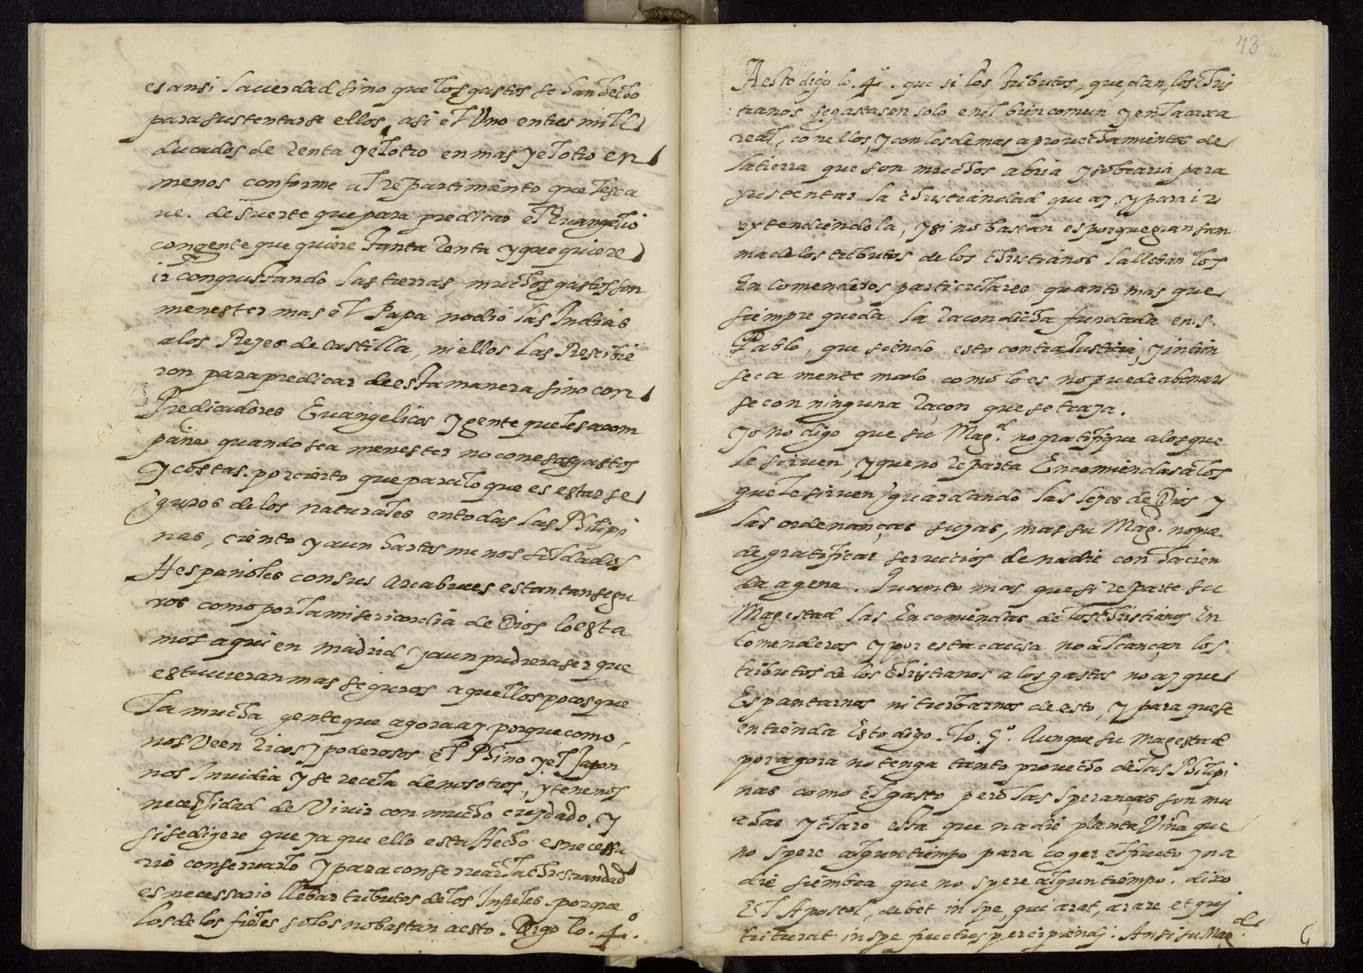 es ansi la verdad sino que los gastos se han hecho
para sustentarse ellos, asi el Uno entres mill
ducados de renta y el otro en mas y el otro en
menos conforme al repartimiento que les ca
ue. de suerte que para predicar el Euangelio
con gente que quiere tanta renta y que quiere
ir conquistando las tierras muchos gastos son
menester mas el Papa no dio las Indias
a los Reyes de castilla, ni ellos las Rescibie
ron para predicar de esta manera sino con
Predicadores Euangelicos y gente que les acom
pañe quando sea menester no con esos gastos
y costas. por cierto que para lo que es estar se
guros de los naturales en todas las Philipi
nas, ciento y aun hartos menos soldados
Hespañoles con sus arcabuces estan tan segu
ros como por la misericordia de Dios lo esta
mos aqui en Madrid y aun pudiera ser que
estuuieran mas seguros aquellos pocos que
la mucha gente que agora ay porque como
nos Veen ricos y poderosos el Chino y el Japon
nos Inuidia y se recela de nosotros, y tenemos
necessidad de Viuir con mucho cuydado. y
si se dixere que ya que ello esta Hecho es necessa
rio conseruarlo y para conseruar la christiandad
es necessario lleuar tributos de los Infieles. porque
los de los fieles solos no bastan a esto. Digo lo. 4º.
73
A esto digo lo. 4º. que si los tributos, que dan los chris
tianos se gastasen solo en el bien comun y en la caxa
real, con ellos, y con los demas aprouechamientos de
la tierra que son muchos abria y sobraria para
sustentar la christiandad que ay. y para ir
extendiendola, y si no bastan es porque gran sum
ma de los tributos de los christianos la lleuan los
Encomenderos particulares quanto mas que
siempre queda la racon dicha fundada en S.
Pablo, que siendo esto contra Justicia, y intrin
secamente malo como lo es no puede abonar
se con ninguna raçon que se traya.
yo no digo que su Magd. no gratifique a los que
le siruen, y que no reparta Encomiendas a los
que le siruen guardando las leyes de Dios y
las ordenanças suyas, mas su Magd. no pue
de gratificar seruicios de nadie con hacien
da agena. Quanto mas que si reparte su
Magestad las Encomiendas de los christianos En
comenderos y por esta causa no alcançan los
tributos de los christianos a los gastos no ay que
Espantarnos ni turbarnos de esto, y para que se
entienda Esto digo. lo. 5º. Aunque su Magestad
por agora no tenga tanto prouecho de las Philipi
nas como el gasto pero las sperancas son mu
chas y claro esta que nadie planta Viña que
no spere algun tiempo para coger el fructo y na
die siembra que no spere algun tiempo. dixo
El Apostol, debet in spe, qui arat, arare et qui
triturat in spe fructus percipiendi. Ansi su Magd.